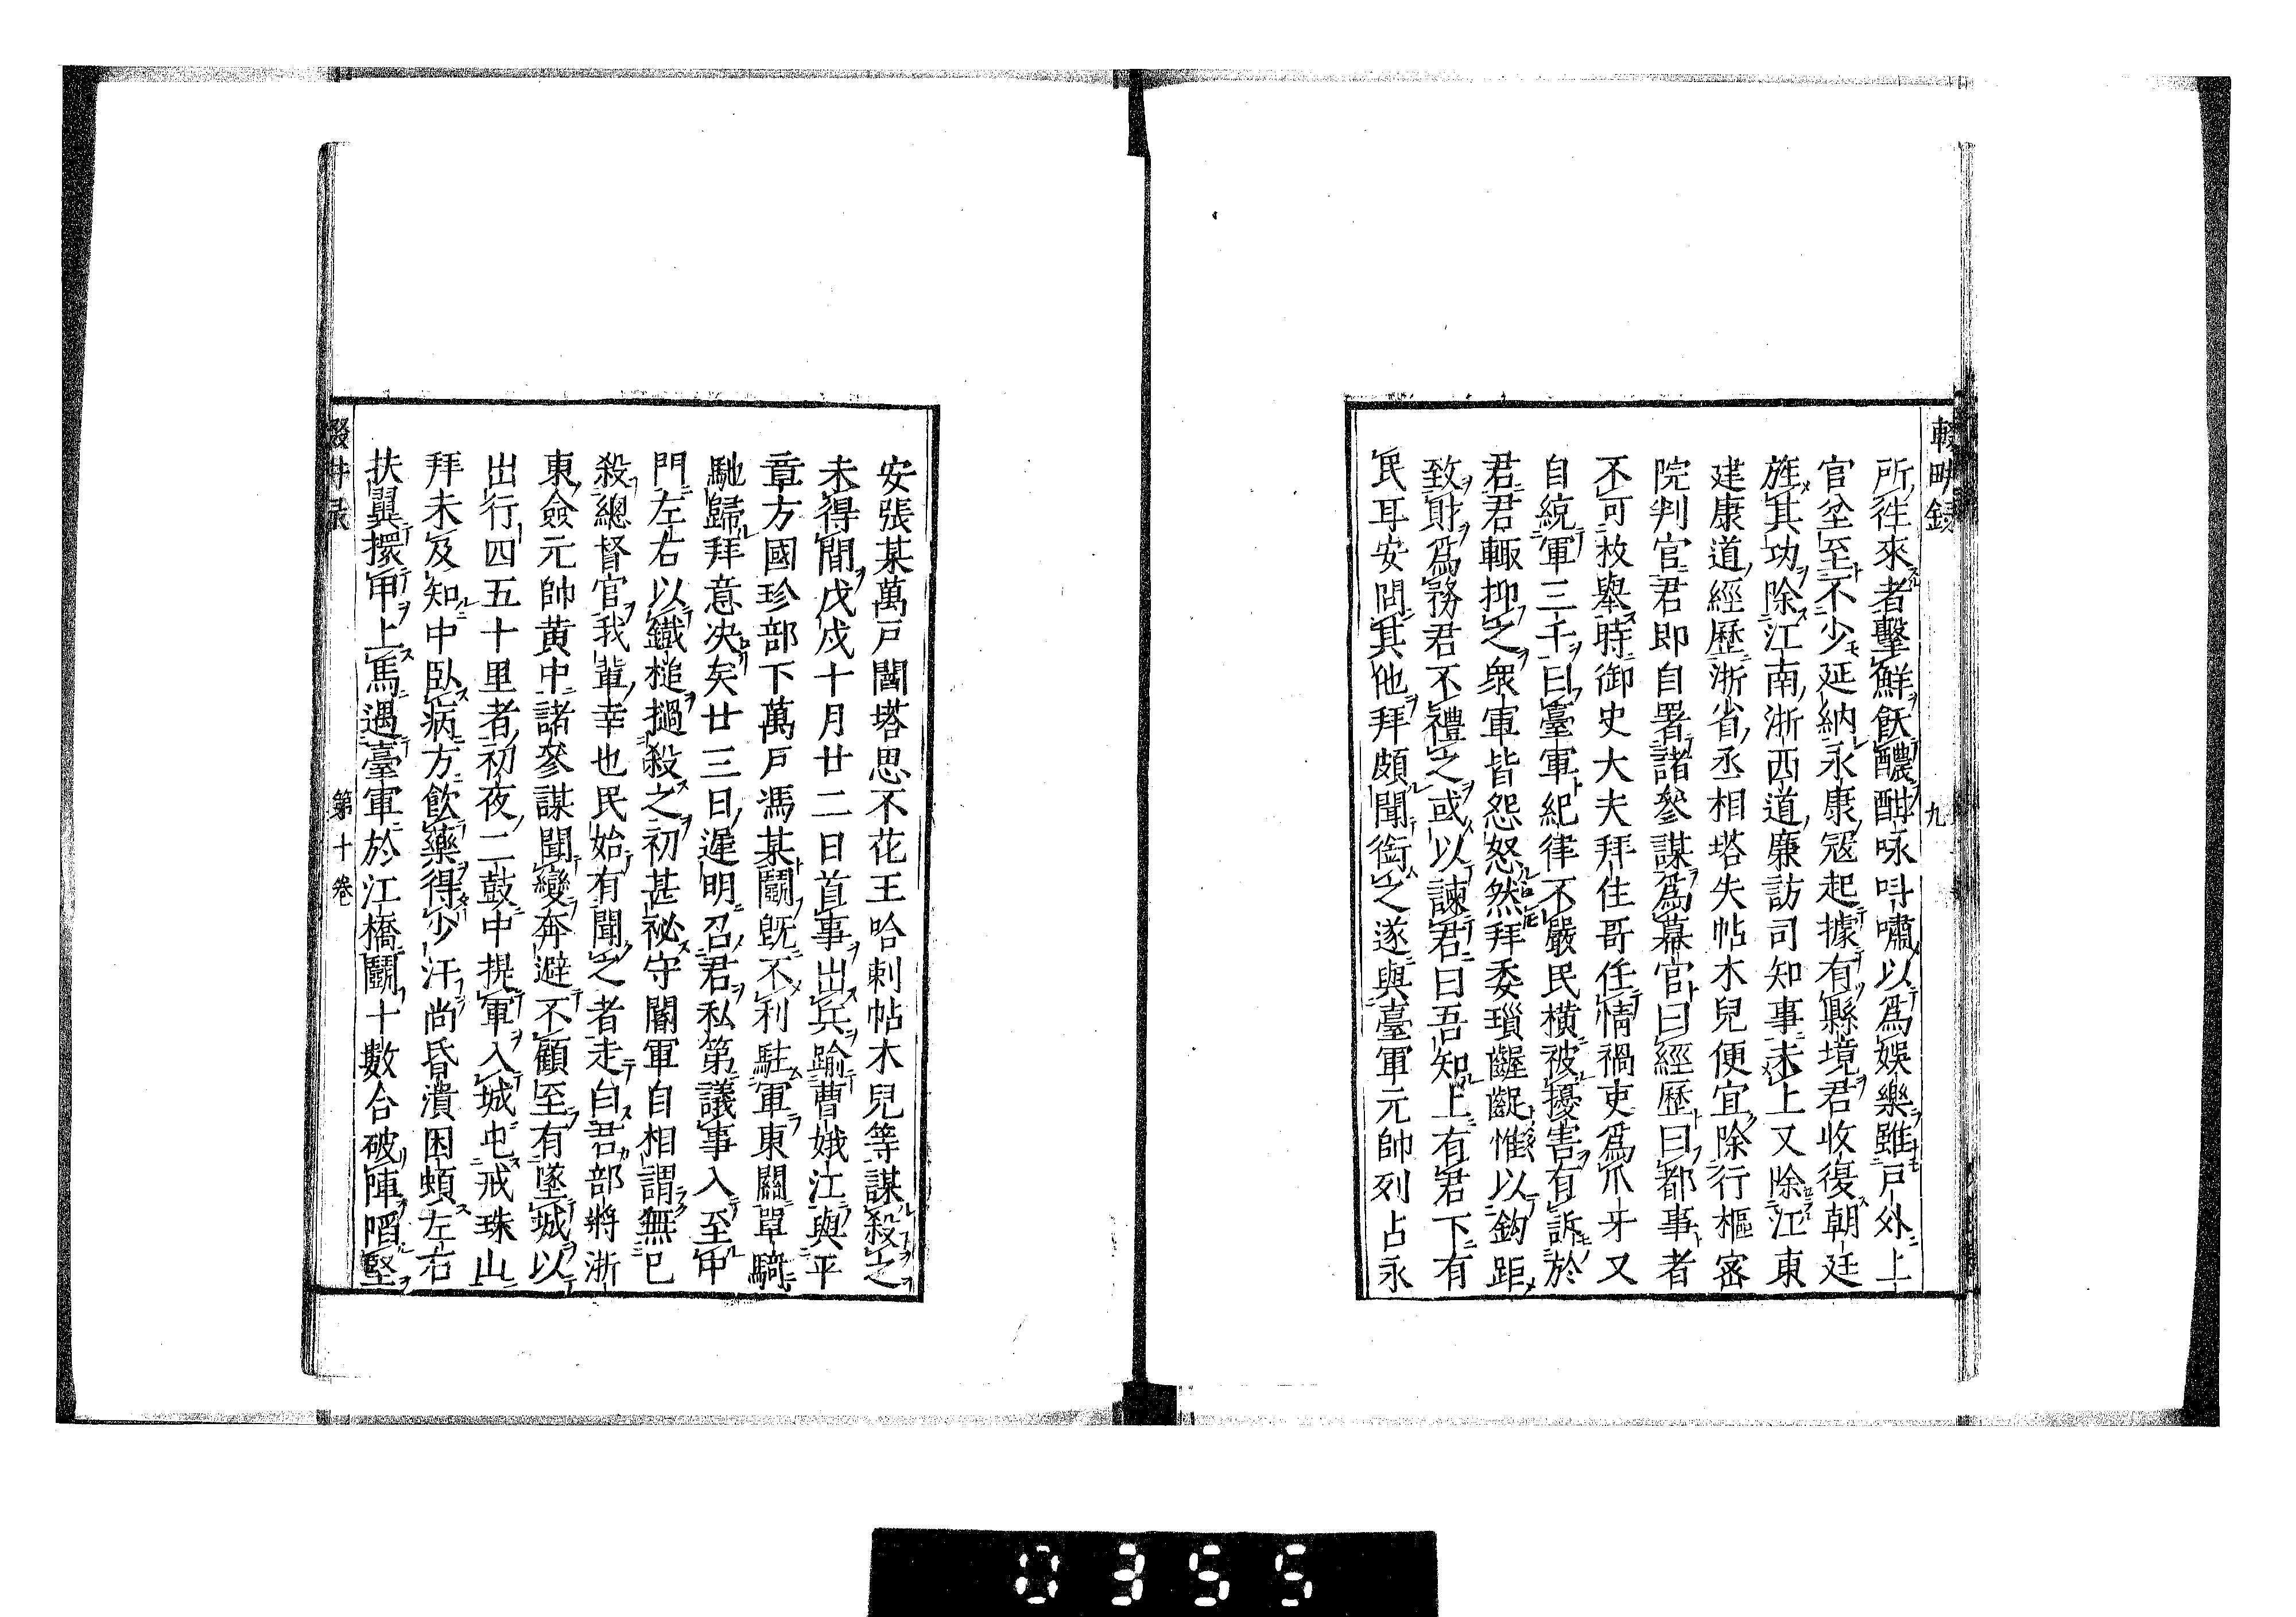 輟畊録
九
所往來者擊鮮飲醲酣咏呌嘯以爲娛樂雖戸外上
官坌至不少延納永康冦起據有縣境君收復朝廷
旌其功除江南浙西道廉訪司知事未上又除江東
建康道經歷浙省丞相塔失帖木兒便宜除行樞密
院判官君即自署諸參謀爲幕官曰經歷曰都事者
不可枚舉時御史大夫拜住哥任情禍吏爲爪牙又
自統軍三千曰臺軍紀律不嚴民橫被擾害有訴於
君君輙抑之衆軍皆怨怒然拜委瑣齷齪惟以鈎距
致財爲務君不禮之或以諫君曰吾知上有君下有
民耳安問其他拜頗聞銜之遂與臺軍元帥列占永
安張某萬戸闊塔思不花王哈剌帖木兒等謀殺之
未得間戊戌十月廿二日首事出兵踰曹娥江與平
章方國珍部下萬戸馮某鬭既不利駐軍東關單騎
馳歸拜意决矣廿三日遲明召君私第議事入至中
門左右以鐵槌撾殺之初甚祕守闕軍自相謂無已
殺總督官我輩幸也民始有聞之者走白君部將浙
東僉元帥黄中諸參謀聞變奔避不顧至有墜城以
出行四五十里者初夜二鼓中提軍入城屯戒珠山
拜未及知中臥病方飲藥得少汗尚昏潰困頓左右
扶翼擐甲上馬遇臺軍於江橋鬭十數合破陣䧟堅
輟畊录
第十卷
0355